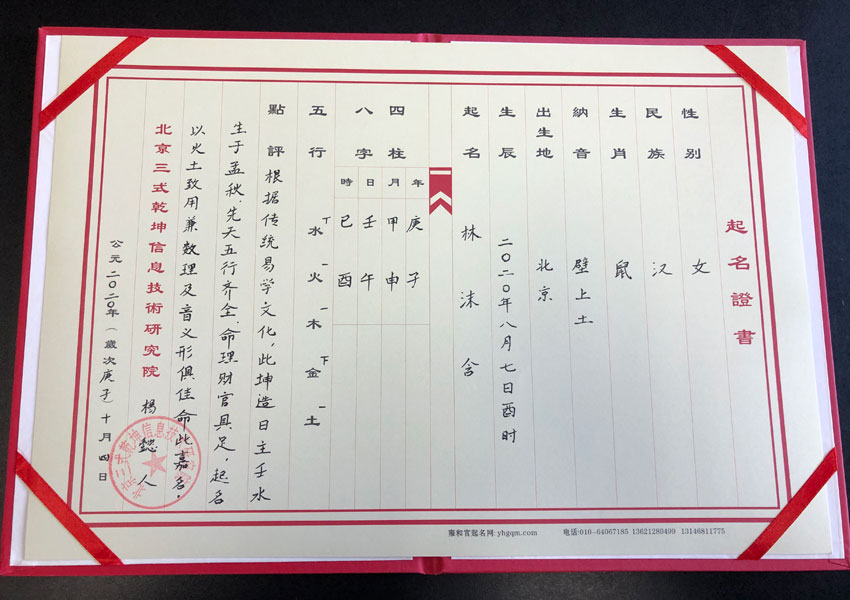 起名證書
性别 女
民族 汉
生肖 鼠
納音 壁上土
出生地 北京
生辰 二〇二〇年八月七日酉时
起名 林沫含
四柱
八字
年 庚子
月 甲申
日 壬午
時 己酉
五行 水 火 木 金 土
點評 根据传统易学文化，此坤造日主壬水
生于孟秋，先天五行齐全，命理财官具足，起名
以火土致用兼数理及音义形俱佳命此嘉名。
北京三式乾坤信息技術研究院 楊懿人
公元二〇二〇年（歲次庚子）十月四日
雍和宫起名网:yhgqm.com 电话:010-64067185 13621280499 13146811775